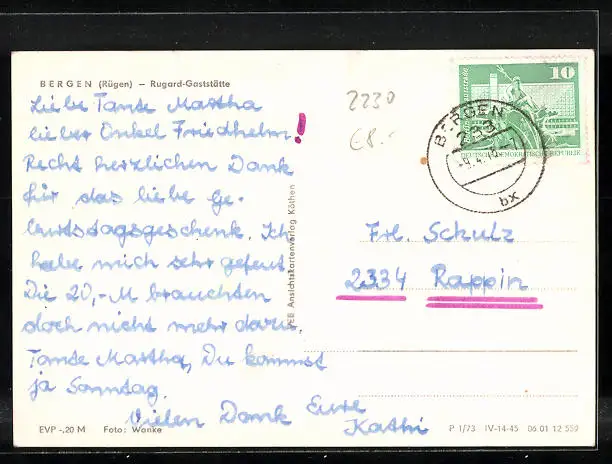 BERGEN (Rügen) – Rugard-Gaststätte
Liebe Tante Martha
lieber Onkel Friedhelm!
Recht herzlichen Dank
für das liebe Ge-
burtstagsgeschenk. Ich
habe mich sehr gefreut.
Die 20,-M brauchten
doch nicht mehr
Tante Martha, Du kommst
ja Sonntag.
Vielen Dank Eure
Kathi
EVP -,20 M Foto: Wanke
VEB Ansichtskartenverlag Köthen
2230
€8.-
10
DEUTSCHE DEMOKRATISCHE REPUBLIK
BERGEN
233
bx
Frl. Schulz
2334 Rappin
P 1/73 IV-14-45 06 01 12 559